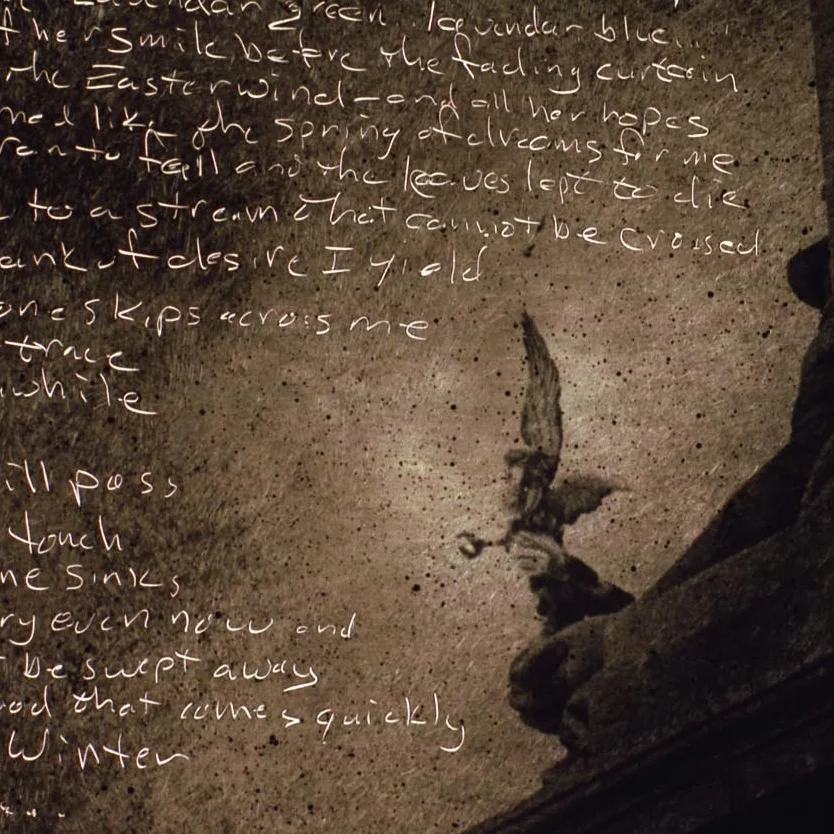 Lavendar green... lavendar blue....
her smile before the fading curtain
the Easter wind - and all her hopes
like the spring of dreams for me
to fall and the leaves left to die
to a stream that cannot be crossed
of desire I yield
skips across me
trace
while
ill pass
touch
sinks
ry even now and
be swept away
od that comes quickly
Winter
....